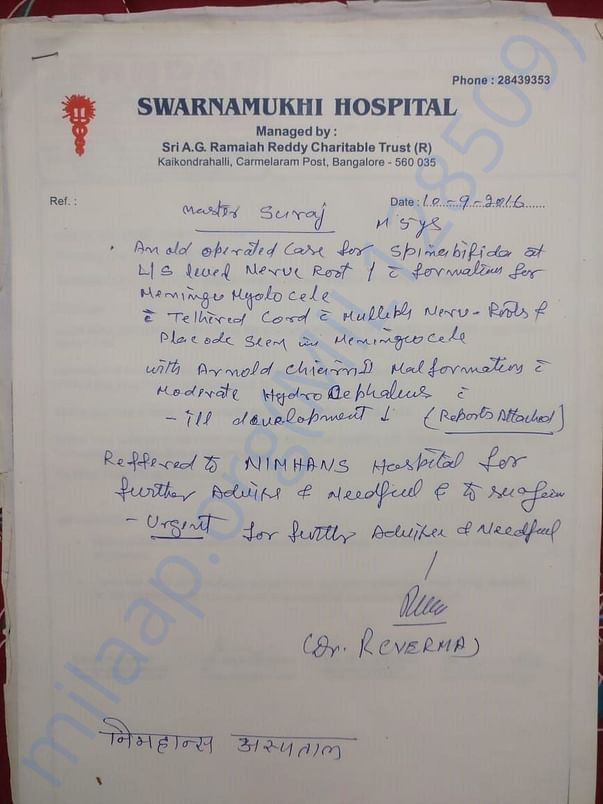 Phone : 28439353
SWARNAMUKHI HOSPITAL
Managed by :
Sri A.G. Ramaiah Reddy Charitable Trust (R)
Kaikondrahalli, Carmelaram Post, Bangalore - 560 035
Ref. :
Date : 10-9-2016
Master Suraj
M 5ys
An old operated Case for Spinabifida at
L/S level Nerve Root formation for
Meningo Myolocele
c̄ Telhired Cord c̄ Multiple Nerve-Roots &
Placode Seen in Meningocele
with Arnold Chiari II Malformation c̄
Moderate HydroCephalus c̄
- ill development ↓ (Reports Attached)
Reffered to NIMHANS Hospital for
further Advise & Needful & to
- Urgent for further Advise & Needful
(Dr. R C VERMA)
निमहान्स अस्पताल
milaap.org(MIL128509)